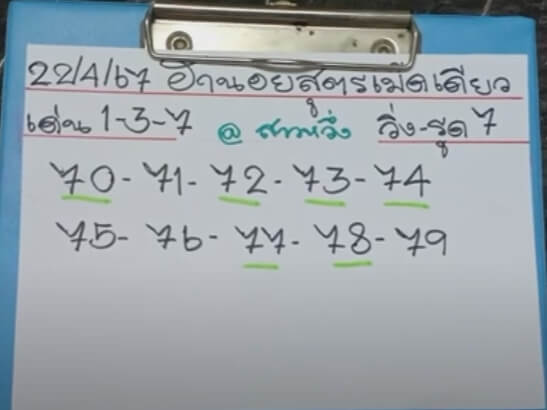 22/4/67 ฮานอยสูตรเม็ดเดียว
เด่น 1-3-7 @ สาวหวึ่ง วิ่ง-รูด 7
70-71-72-73-74
75-76-77-78-79